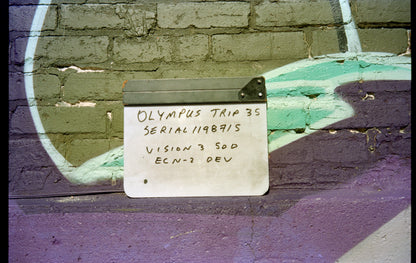 OLYMPUS TRIP 35
SERIAL 1198715
VISION 3 50D
ECN-2 DEV